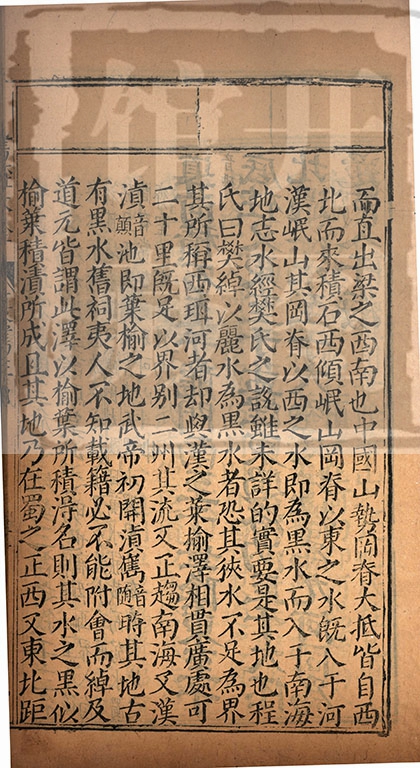 而直出梁之西南也中國山勢岡脊大抵皆自西
北而來積石西傾岷山岡脊以東之水既入于河
漢岷山其岡脊以西之水即為黑水而入于南海
地志水經樊氏之說雖未詳的實要是其地也程
氏曰樊綽以麗水為黑水者恐其狹水不足為界
其所稱西珥河者却與漢之葉榆澤相貫廣處可
二十里既足以界別二州其流又正趨南海又漢
滇音顛池即葉榆之地武帝初開滇嶲音隨時其地古
有黑水舊祠夷人不知載籍必不能附會而綽及
道元皆謂此澤以榆葉所積得名則其水之黑似
榆葉積漬所成且其地乃在蜀之正西又東北距